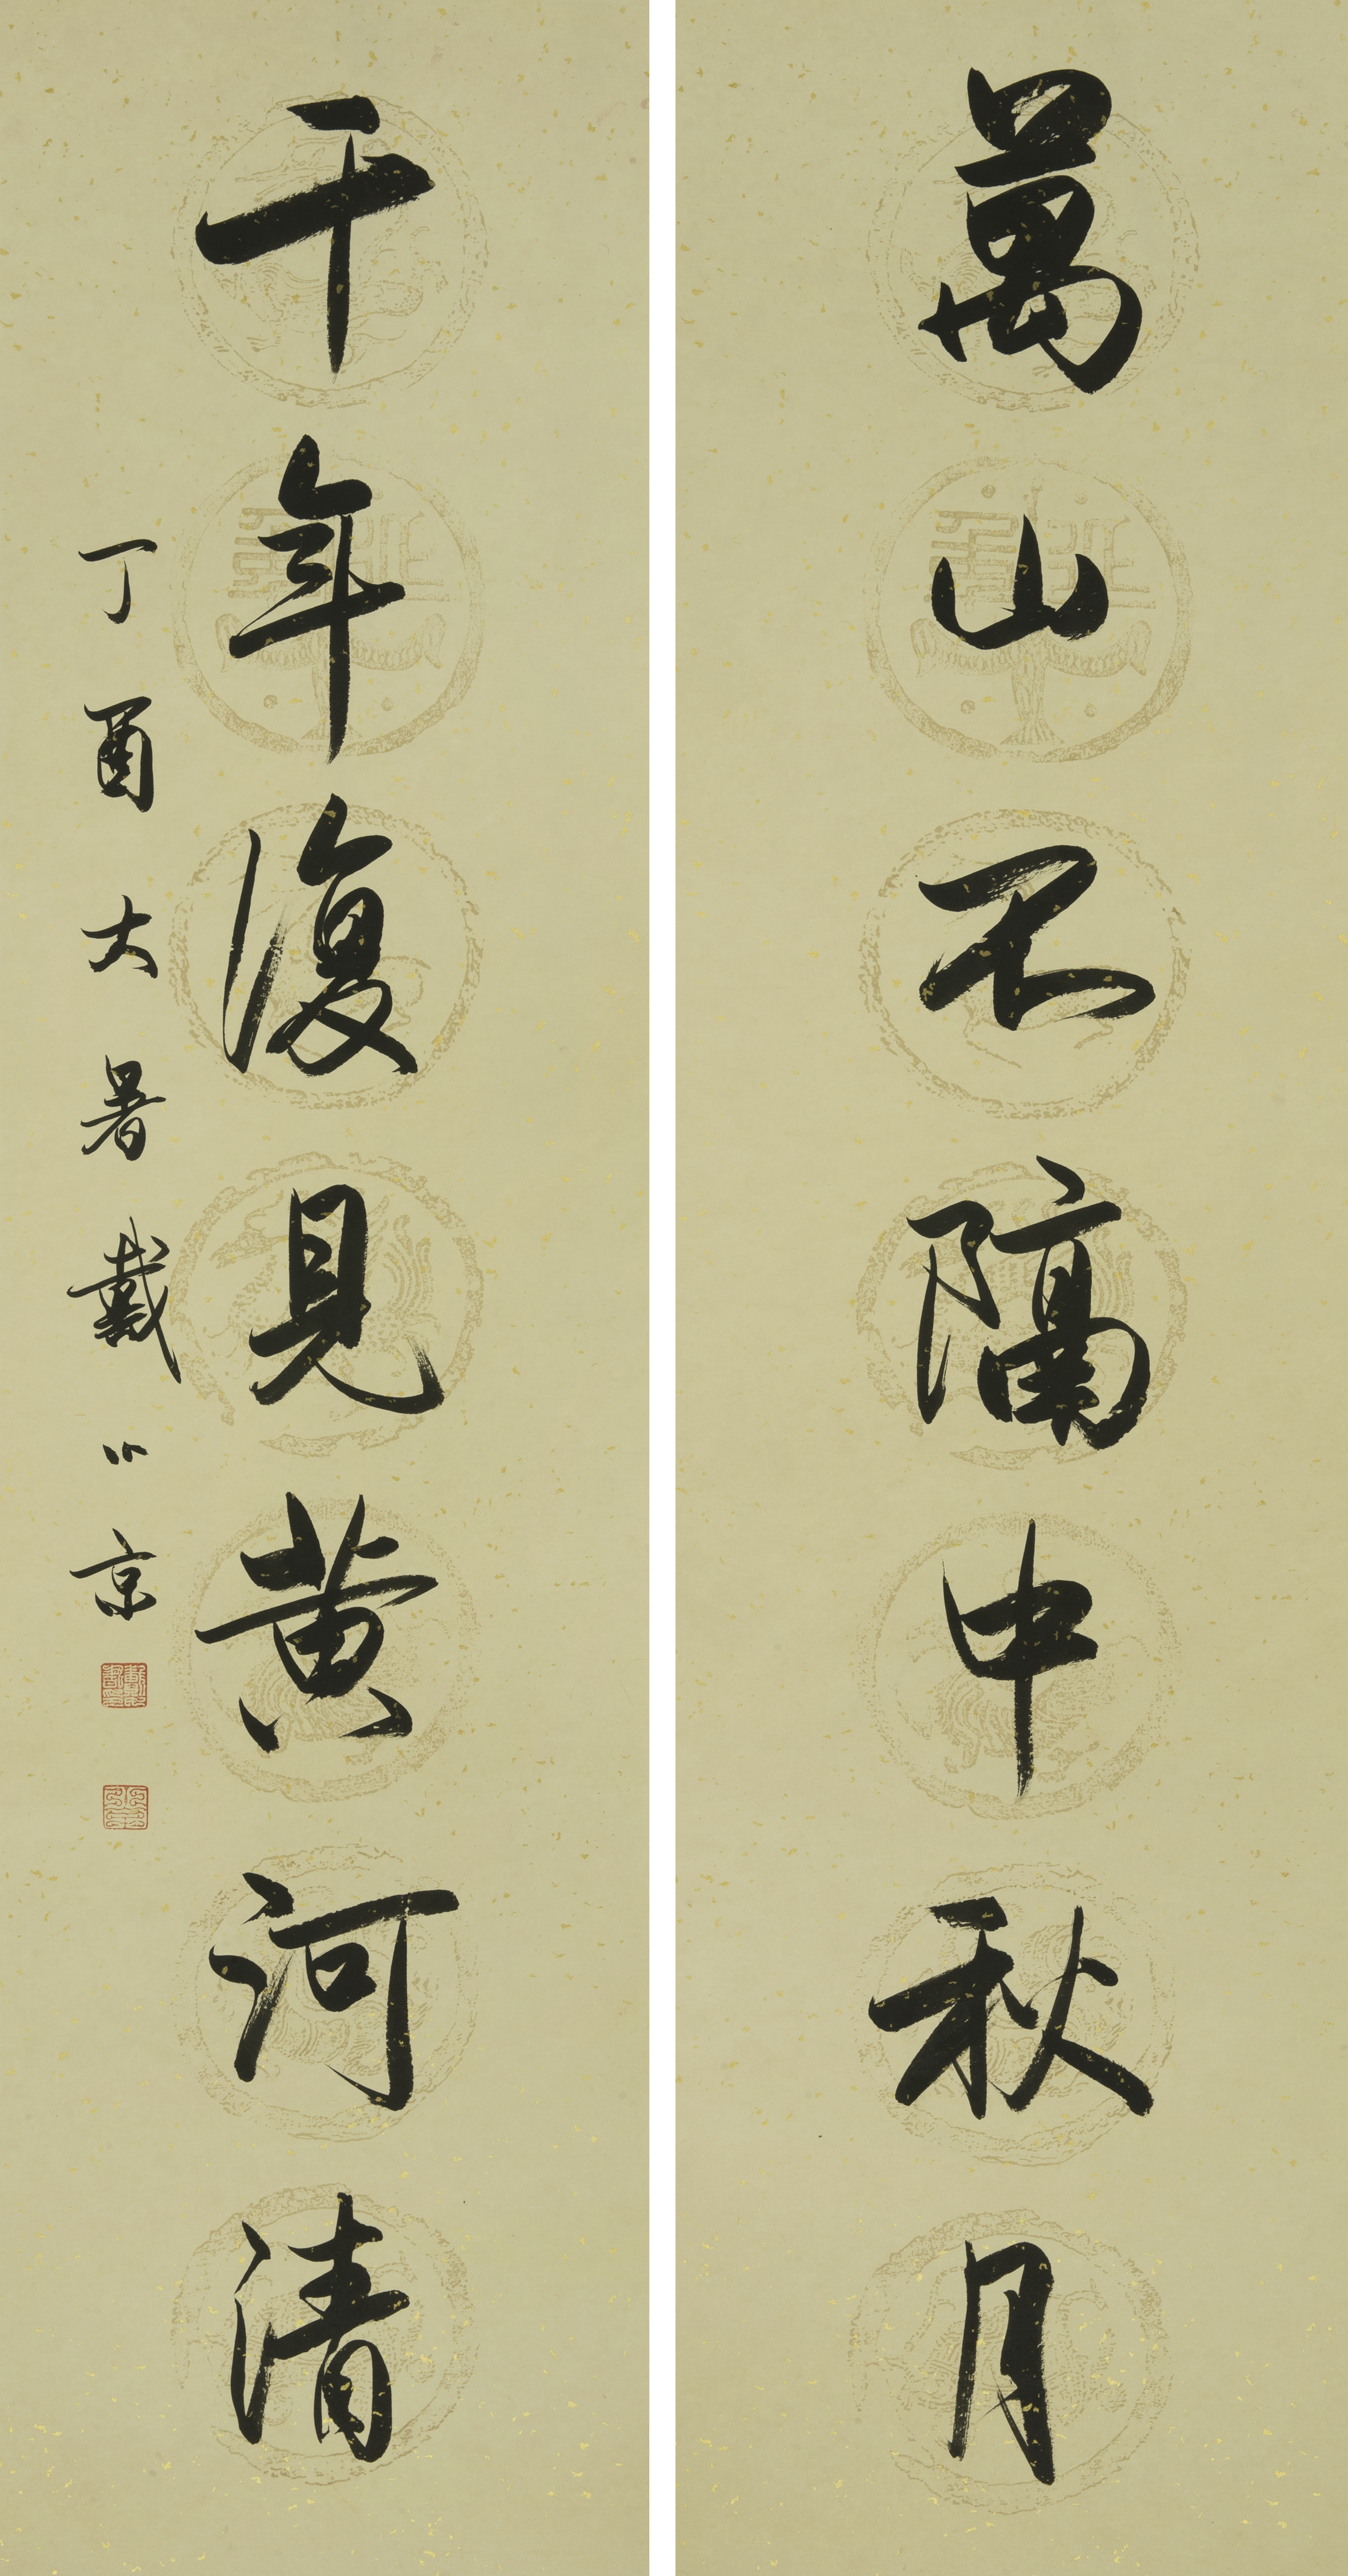 萬山不隔中秋月
千年復見黃河清
丁酉大暑戴小京